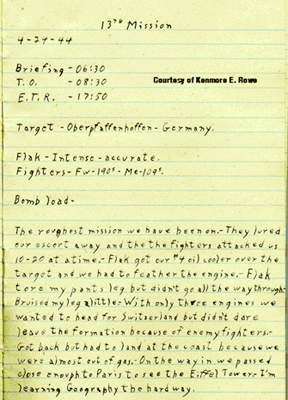 13TH Mission
4-24-44
Briefing - 06:30
Courtesy of Kenmore E. Rowe
T.O. - 08:30
E.T.R. - 17:50
Target - Oberpfaffenhoffen - Germany.
Flak - Intense - accurate.
Fighters - Fw-190s - Me-109s.
Bomb load -
The roughest mission we have been on. - They lured
our escort away and the the fighters attacked us
10-20 at a time. - Flak got our #4 oil cooler over the
target and we had to feather the engine. - Flak
tore my pants leg but didn't go all the way through -
Bruised my leg a little. - With only three engines we
wanted to head for Switzerland but didn't dare
leave the formation because of enemy fighters. -
Got back but had to land at the coast because we
were almost out of gas. - On the way in we passed
close enough to Paris to see the Eiffel Tower. I'm
learning Geography the hard way.